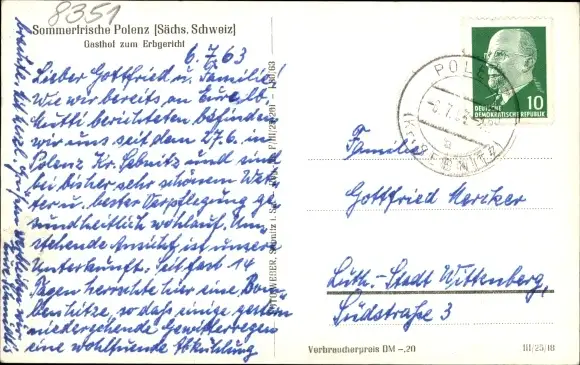 8351
Sommerfrische Polenz [Sächs. Schweiz]
Gasthof zum Erbgericht
6.7.63
Lieber Gottfried u. Familie!
Wie wir bereits an Eure lb.
Mutti berichteten befinden
wir uns seit dem 27.6. in
Polenz Kr. Sebnitz und sind
bei bisher sehr schönem Wet-
ter u. bester Verpflegung ge-
sundheitlich wohlauf. Um-
stehende Ansicht ist unsere
Unterkunft. Seit fast 14
Tagen herrschte hier eine Bom-
benhitze, so daß einige gestern
niedergehende Gewitterregen
eine wohltuende Abkühlung
brachte. Mit herzl. Grüßen verbleiben wir
Eure
POLENZ
-6.7.63
(KR. SEBNITZ)
DEUTSCHE
DEMOKRATISCHE REPUBLIK
10
Familie
Gottfried Mercker
Luth.-Stadt Wittenberg,
Südstraße 3
Verbraucherpreis DM -,20
III/25/18